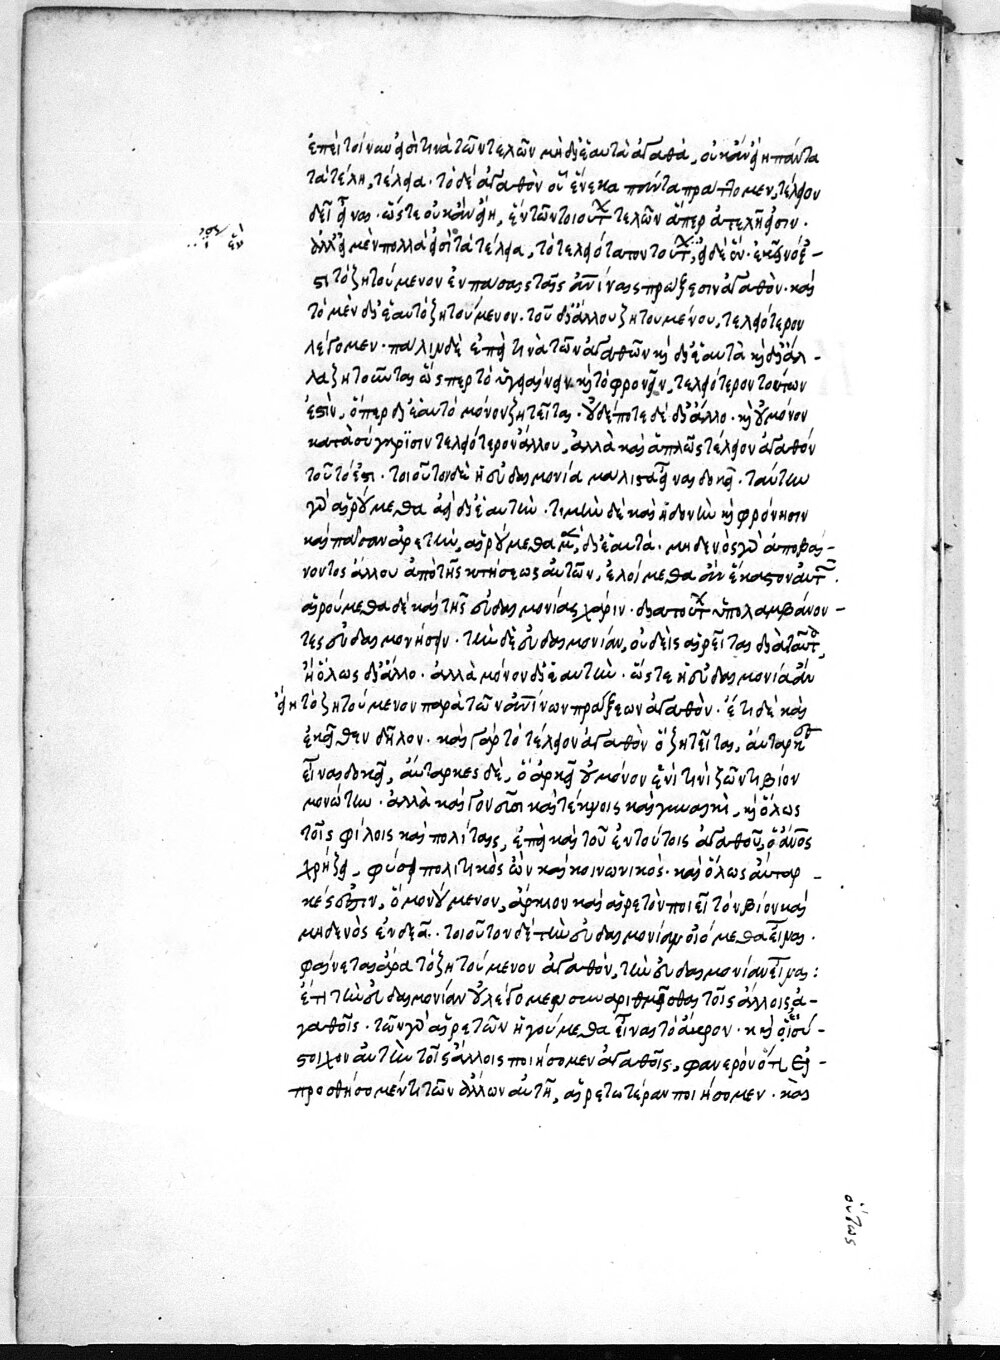 ἐπεὶ τοίνυν εἰσί τινα τῶν τελῶν μὴ δι' ἑαυτὰ ἀγαθὰ, οὐκ ἂν εἴη πάντα
τὰ τέλη, τέλεια. τὸ δὲ ἀγαθὸν οὗ ἕνεκα πάντα πράττομεν, τέλειον
δεῖ εἶναι. ὥστε οὐκ ἂν εἴη, ἓν τῶν τοιούτων τελῶν ἅπερ ἀτελῆ εἰσιν.
ἀλλ' εἰ μὲν πολλὰ εἰσὶ τὰ τέλεια, τὸ τελειότατον τούτων, εἰ δὲ ἓν. ἐκεῖνό ἐ-
στι τὸ ζητούμενον ἐν πάσαις ταῖς ἀνίναις πράξεσιν ἀγαθὸν. καὶ
τὸ μὲν δι' ἑαυτὸ ζητούμενον. τοῦ δι' ἄλλου ζητουμένου, τελειότερον
λέγομεν. πάλιν δὲ ἐπεί τινα τῶν ἀγαθῶν καὶ δι' ἑαυτὰ καὶ δι' ἄλ-
λα ζητοῦνται ὥσπερ τὸ ὑγιαίνειν καὶ τὸ φρονεῖν, τελειότερον τούτων
ἐστὶν, ὅπερ δι' ἑαυτὸ μόνον ζητεῖται. οὐδέποτε δὲ δι' ἄλλο. καὶ οὐ μόνον
κατὰ σύγκρισιν τελειότερον ἄλλου, ἀλλὰ καὶ ἁπλῶς τέλειον ἀγαθόν
τοῦτό ἐστι. τοιοῦτον δὲ ἡ εὐδαιμονία μάλιστα εἶναι δοκεῖ. ταύτην
γὰρ αἱρούμεθα ἀεὶ δι' ἑαυτὴν. τιμὴν δὲ καὶ ἡδονὴν καὶ φρόνησιν
καὶ πᾶσαν ἀρετὴν, αἱρούμεθα μὲν, δι' ἑαυτά. μηδενὸς γὰρ ἀποβαί-
νοντος ἄλλου ἀπὸ τῆς κτήσεως αὐτῶν, ἑλοίμεθα ἂν ἕκαστον αὐτῶν.
αἱρούμεθα δὲ καὶ τῆς εὐδαιμονίας χάριν. διὰ τούτων ὑπολαμβάνον-
τες εὐδαιμονήσειν. τὴν δὲ εὐδαιμονίαν, οὐδεὶς αἱρεῖται διὰ ταῦτα,
ἢ ὅλως δι' ἄλλο. ἀλλὰ μόνον δι' ἑαυτὴν. ὥστε ἡ εὐδαιμονία ἂν
εἴη τὸ ζητούμενον παρὰ τῶν ἀνίνων πράξεων ἀγαθὸν. ἔτι δὲ καὶ
ἐκεῖθεν δῆλον. καὶ γὰρ τὸ τέλειον ἀγαθὸν ὃ ζητεῖται, αὔταρκες
εἶναι δοκεῖ, αὔταρκες δὲ, ὃ ἀρκεῖ οὐ μόνον ἑνί τινι ζῶντι βίον
μονώτην. ἀλλὰ καὶ γονεῦσι καὶ τέκνοις καὶ γυναικὶ, καὶ ὅλως
τοῖς φίλοις καὶ πολίταις, ἐπεὶ καὶ τοῦ ἐν τούτοις ἀγαθοῦ, ὁ ἄνος
χρήζει, φύσει πολιτικὸς ὢν καὶ κοινωνικὸς. καὶ ὅλως αὔταρ-
κές ἐστιν, ὃ μονούμενον, ἄρκιον καὶ αἱρετὸν ποιεῖ τὸν βίον καὶ
μηδενὸς ἐνδεᾶ. τοιοῦτον δὲ τὴν εὐδαιμονίαν οἰόμεθα εἶναι.
φαίνεται ἄρα τὸ ζητούμενον ἀγαθὸν, τὴν εὐδαιμονίαν εἶναι:
ἔτι τὴν εὐδαιμονίαν οὐ λέγομεν συναριθμεῖσθαι τοῖς ἄλλοις ἀ-
γαθοῖς. τῶν γὰρ αἱρετῶν ἡγούμεθα εἶναι τὸ ἄκρον. καὶ εἰ σύ-
στοιχον αὐτὴν τοῖς ἄλλοις ποιήσομεν ἀγαθοῖς, φανερὸν ὅτι εἰ
προσθήσομέν τι τῶν ἄλλων αὐτῇ, αἱρετωτέραν ποιήσομεν. καὶ
οὕτως